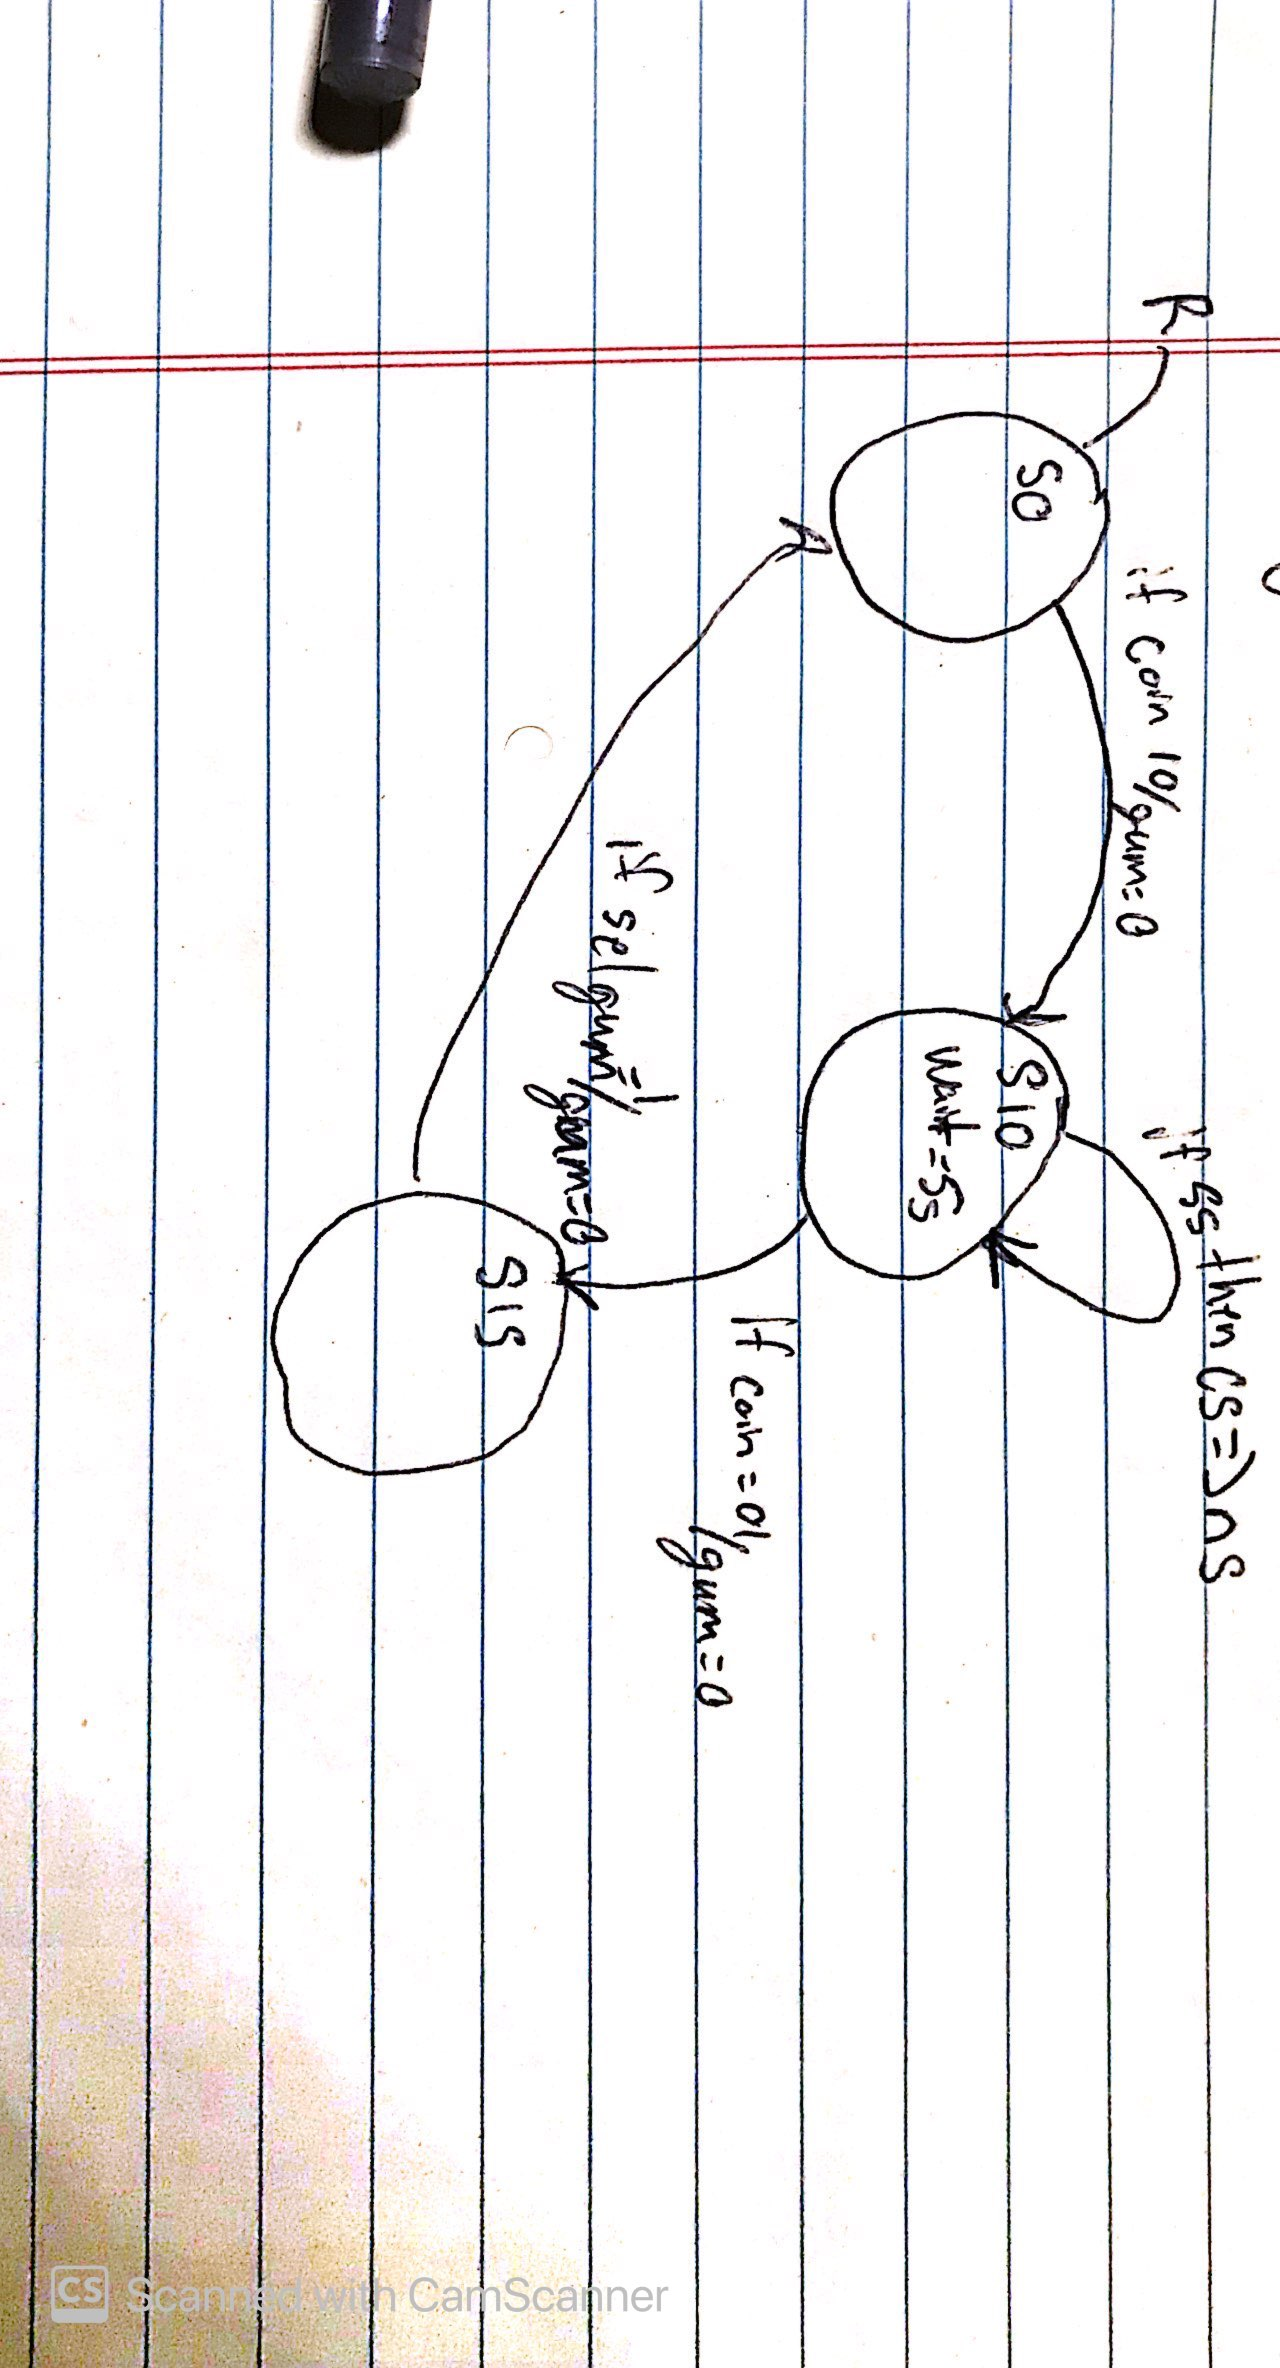 R
S0
if coin 10/gum=0
S10
wait=5s
if 5s then CS=>nS
If coin=01/gum=0
S15
If selgum=1/gum=0
CS Scanned with CamScanner